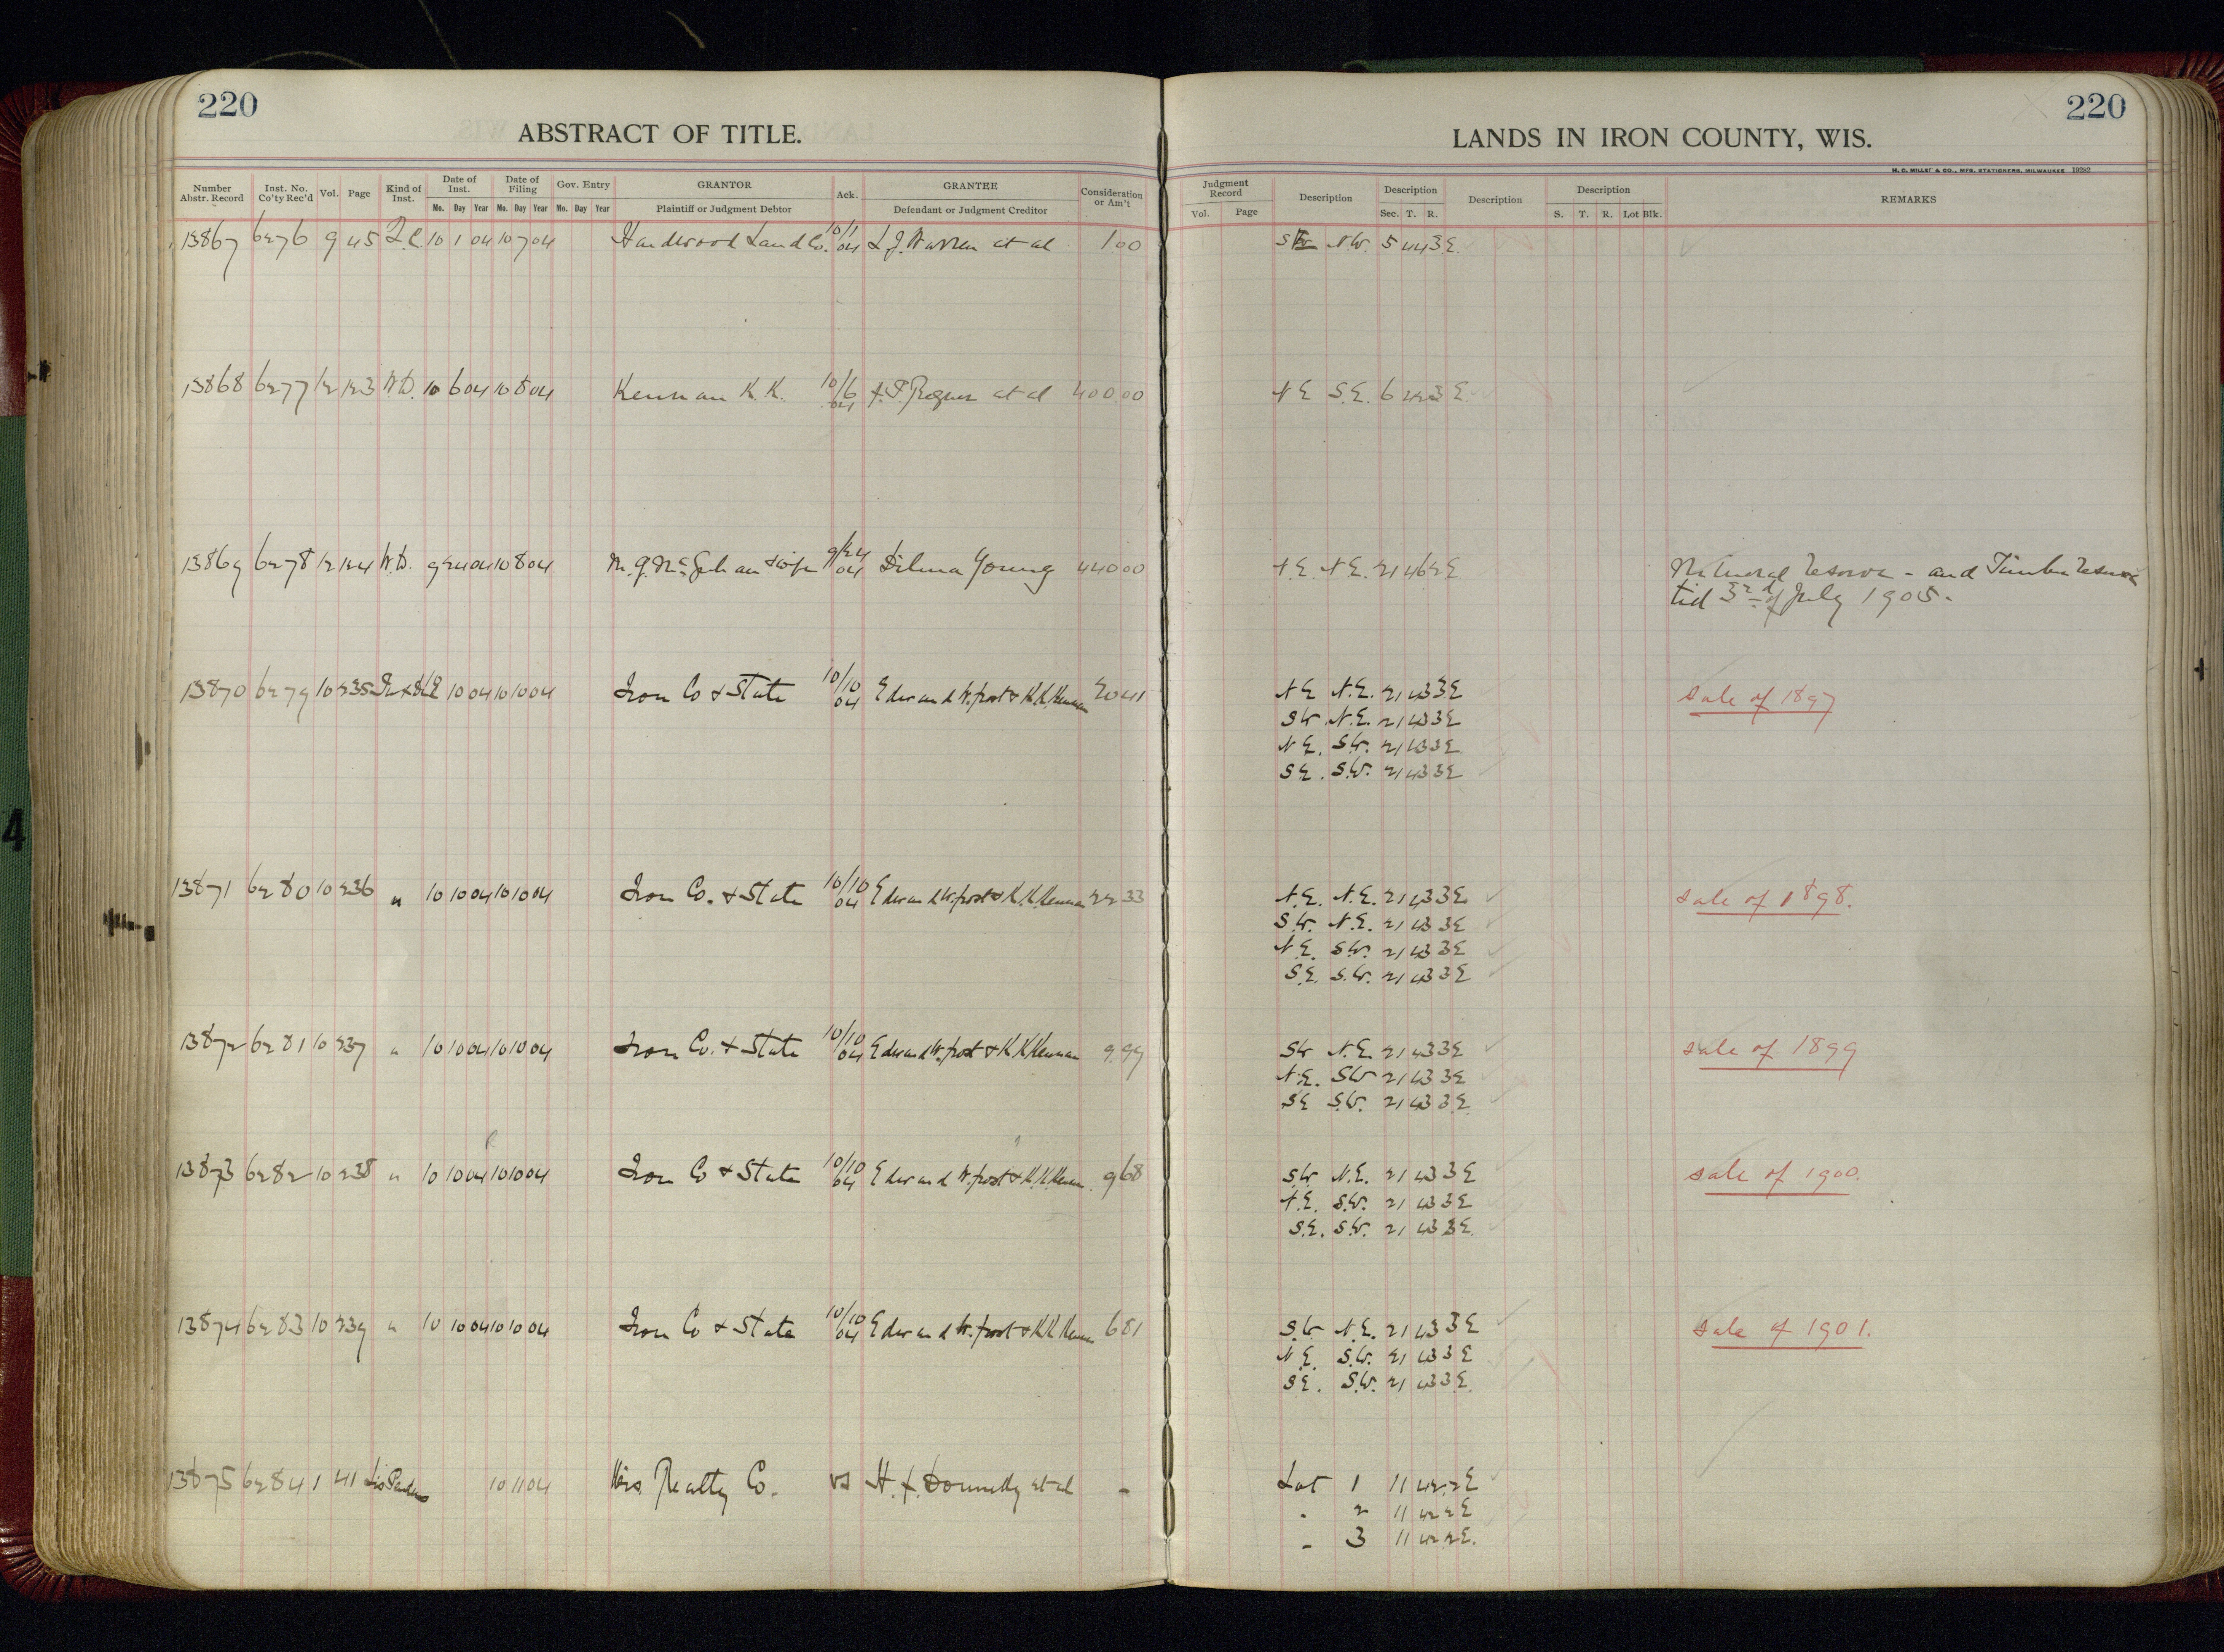 220
220
ABSTRACT OF TITLE.
LANDS IN IRON COUNTY, WIS.
H. C. MILLER CO., MFG. STATIONERS, MILWAUKEE 19282
Number Abstr. Record Inst. No. Co'ty Rec'd Vol. Page Kind of Inst. Date of Inst. Mo. Day Year Date of Filing Mo. Day Year Gov. Entry Mo. Day Year GRANTOR Plaintiff or Judgment Debtor Ack. GRANTEE Defendant or Judgment Creditor Consideration or Am't
Judgment Record Vol. Page Description Description Sec. T. R. Description Description S. T. R. Lot Blk. REMARKS
13867 6276 9 45 Q.C. 10 1 04 10 7 04 Hardwood Land Co. 10/1 04 L.J. Warren et al 1.00 N.W. 5 44 3 E.
13868 6277 12 123 W.D. 10 6 04 10 8 04 Kennan K.K. 10/6 04 et al 400.00 N E S.E. 6 42 3 E.
13869 6278 12 124 W.D. 9 24 04 10 8 04 & wife 9/24 04 Young 440 00 N.E. N.E. 21 46 2 E
Mineral reserve - and Timber reserve
til 3rd of July 1905.
13870 6279 10 235 10 04 10 10 04 Iron Co & State 10/10 04 Edward W. Frost & K.K. Kennan 20 41 N E N.E. 21 43 3 E sale of 1897
SW N.E. 21 43 3 E
N E. S.W. 21 43 3 E
S E. S.W. 21 43 3 E
13871 6280 10 236 " 10 10 04 10 10 04 Iron Co. & State 10/10 04 Edward W. Frost & K.K. Kennan 22 33 N.E. N.E. 21 43 3 E. sale of 1898.
S.W. N.E. 21 43 3 E
N E. S.W. 21 43 3 E
S.E. S.W. 21 43 3 E
13872 6281 10 237 " 10 10 04 10 10 04 Iron Co. & State 10/10 04 Edward W. Frost & K.K. Kennan 9.99 SW N.E. 21 43 3 E sale of 1899
N.E. SW 21 43 3 E
S E S.W. 21 43 3 E
13873 6282 10 238 " 10 10 04 10 10 04 Iron Co & State 10/10 04 Edward W. Frost & K.K. Kennan. 9 68 S.W. N.E. 21 43 3 E sale of 1900.
N.E. S.W. 21 43 3 E
S.E. S.W. 21 43 3 E.
13874 6283 10 239 " 10 10 04 10 10 04 Iron Co & State 10/10 04 Edward W. Frost & K.K. Kennan 6 81 S.W. N.E. 21 43 3 E sale of 1901.
N.E. S.W. 21 43 3 E
S E. S.W. 21 43 3 E.
13875 6284 1 41 Lis Pendens 10 11 04 Wis. Realty Co. vs H. F. Donnelly et al - Lot 1 11 42 2 E
" 2 11 42 2 E
" 3 11 42 2 E.